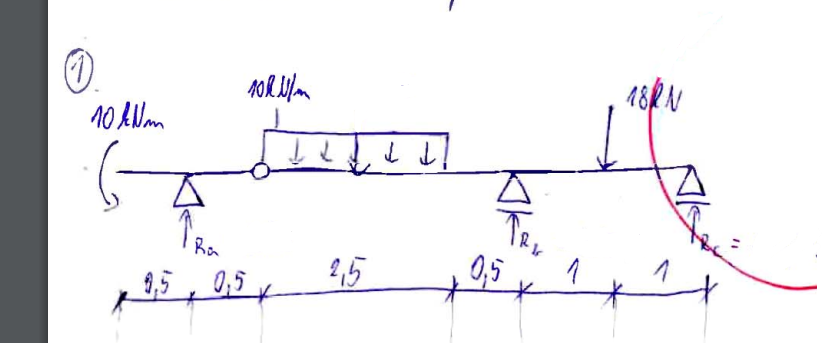 1
10kN/m
18kN
10kNm
Ra
Rb
Rc =
0,5 0,5 2,5 0,5 1 1